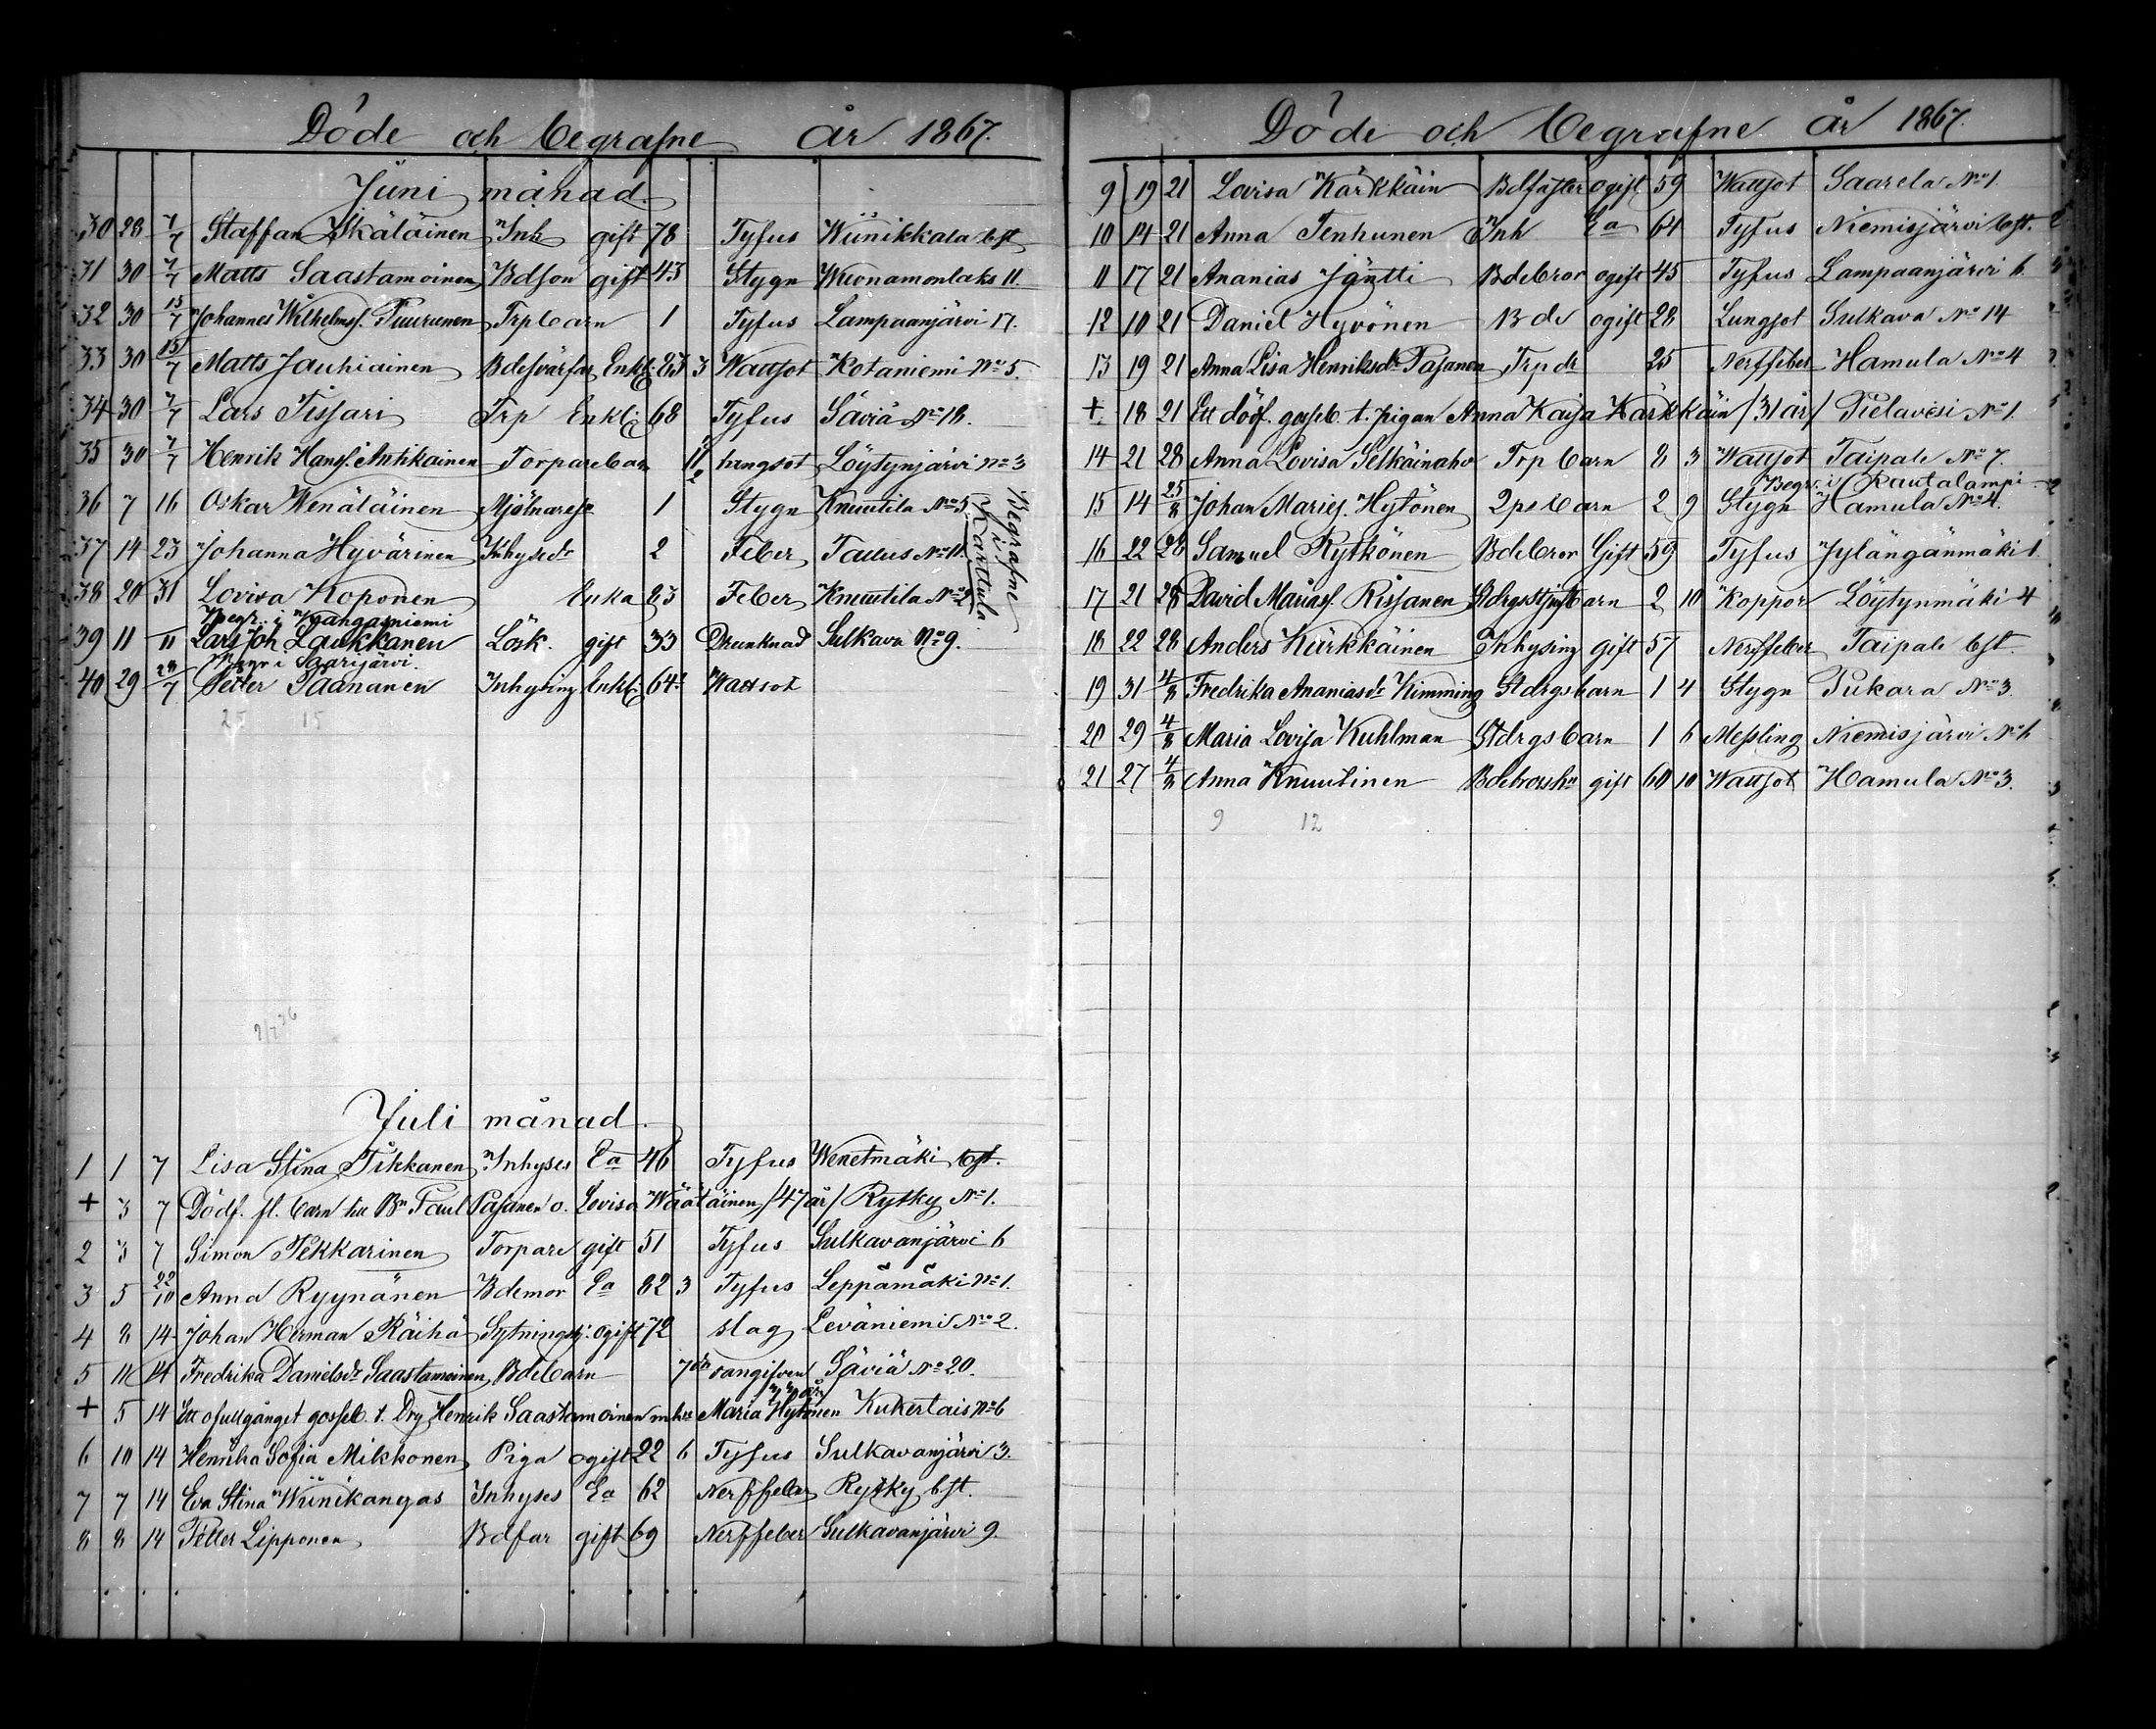 Döde och begrafne år 1867.
Juni månad.
30 28 7/7 Staffan Skäläinen Inh gift 78 Tyfus Wiinikkala bst
31 30 7/7 Matts Saastamoinen Bdson gift 43 Stygn Wuonamonlaks 11.
32 30 15/7 Johannes Wilhelmsf. Puurunen Trpbarn 1 Tyfus Lampaanjärvi 17.
33 30 15/7 Matts Jauhiainen Bdesvärfar Enkl: 83 3 Wattsot Kotaniemi No 5.
34 30 7/7 Lars Tissari Trp Enkl: 68 Tyfus Säviä No 18.
35 30 7/7 Henrik Hansf. Antikainen Torparebarn lungsot Löytynjärvi No 3
36 7 16 Oskar Wenäläinen Mjölnares 1 Stygn Knuutila No 5
37 14 23 Johanna Hyvärinen Inhysedr 2 Feber Tallus No 11
38 20 31 Lovisa Koponen Enka 83 Feber Knuutila No 2
Begrafne i Karttula
Begr. i Kangasniemi
39 11 11 Lars Joh Laukkanen Lösk. gift 33 Drunknad Sulkava No 9.
Begr i Saarijärvi.
40 29 28/7 Petter Paananen Inhysing Enkl. 64 Wattsot
25 15
Juli månad.
1 1 7 Lisa Stina Tikkanen Inhyses Ea 46 Tyfus Wenetmäki bst.
+ 3 7 Dödf. fl. barn till Bn Paul Pasanen o. Lovisa Wäätäinen /47 år/ Rytky No 1.
2 3 7 Simon Pekkarinen Torpare gift 51 Tyfus Sulkavanjärvi 6
3 5 22/10 Anna Ryynänen Bdemor Ea 82 3 Tyfus Leppämäki No 1.
4 8 14 Johan Herman Räihä Sytningshj: ogift 72 slag Leväniemi No 2.
5 11 14 Fredrika Danielsdr Saastamoinen Bdebarn 7 da oangifven Säviä No 20.
+ 5 14 Ett ofullgånget gosseb. t. Drg Henrik Saastamoinen m hu Maria Hytönen Kukertais No 6
6 10 14 Henrika Sofia Mikkonen Piga ogift 22 6 Tyfus Sulkavanjärvi 3.
7 7 14 Eva Stina Wiinikangas Inhyses Ea 62 Nerffeber Rytky bst.
8 8 14 Petter Lipponen Bdfar gift 69 Nerffeber Sulkavanjärvi 9.
Döde och begrafne år 1867.
9 19 21 Lovisa Kärkkäin Bdfaster ogift 59 Wattsot Saarela No 1.
10 14 21 Anna Tenhunen Inh Ea 64 Tyfus Niemisjärvi bst.
11 17 21 Ananias Jäntti Bdebror ogift 45 Tyfus Lampaanjärvi 6.
12 10 21 Daniel Hyvönen Bds ogift 28 Lungsot Sulkava No 14
13 19 21 Anna Lisa Henriksdr Pasanen Trp dr 25 Nerffeber Hamula No 4
+ 18 21 Ett dödf. gosseb. t. pigan Anna Kaisa Kärkkäin /31 år/ Pielavesi No 1.
14 21 28 Anna Lovisa Selkäinaho Trp barn 8 3 Wattsot Taipale No 7.
Begr. i Rautalampi
15 14 25/8 Johan Marief. Hytönen 2ps barn 2 9 Stygn Hamula No 4.
16 22 28 Samuel Rytkönen Bdebror Gift 59 Tyfus Jylängänmäki 1
17 21 28 David Mariasf. Rissanen Stdrgsstjufbarn 2 10 Koppor Löytynmäki 4
18 22 28 Anders Kärkkäinen Inhysing gift 57 Nerffeber Taipale bst.
19 31 4/8 Fredrika Ananiasdr Kimming Stdrgsbarn 1 4 Stygn Pukara No 3.
20 29 4/8 Maria Lovisa Kuhlman Stdrgsbarn 1 6 Messling Niemisjärvi No 1.
21 27 4/8 Anna Knuutinen Bdebrorshu gift 60 10 Wattsot Hamula No 3.
9 12